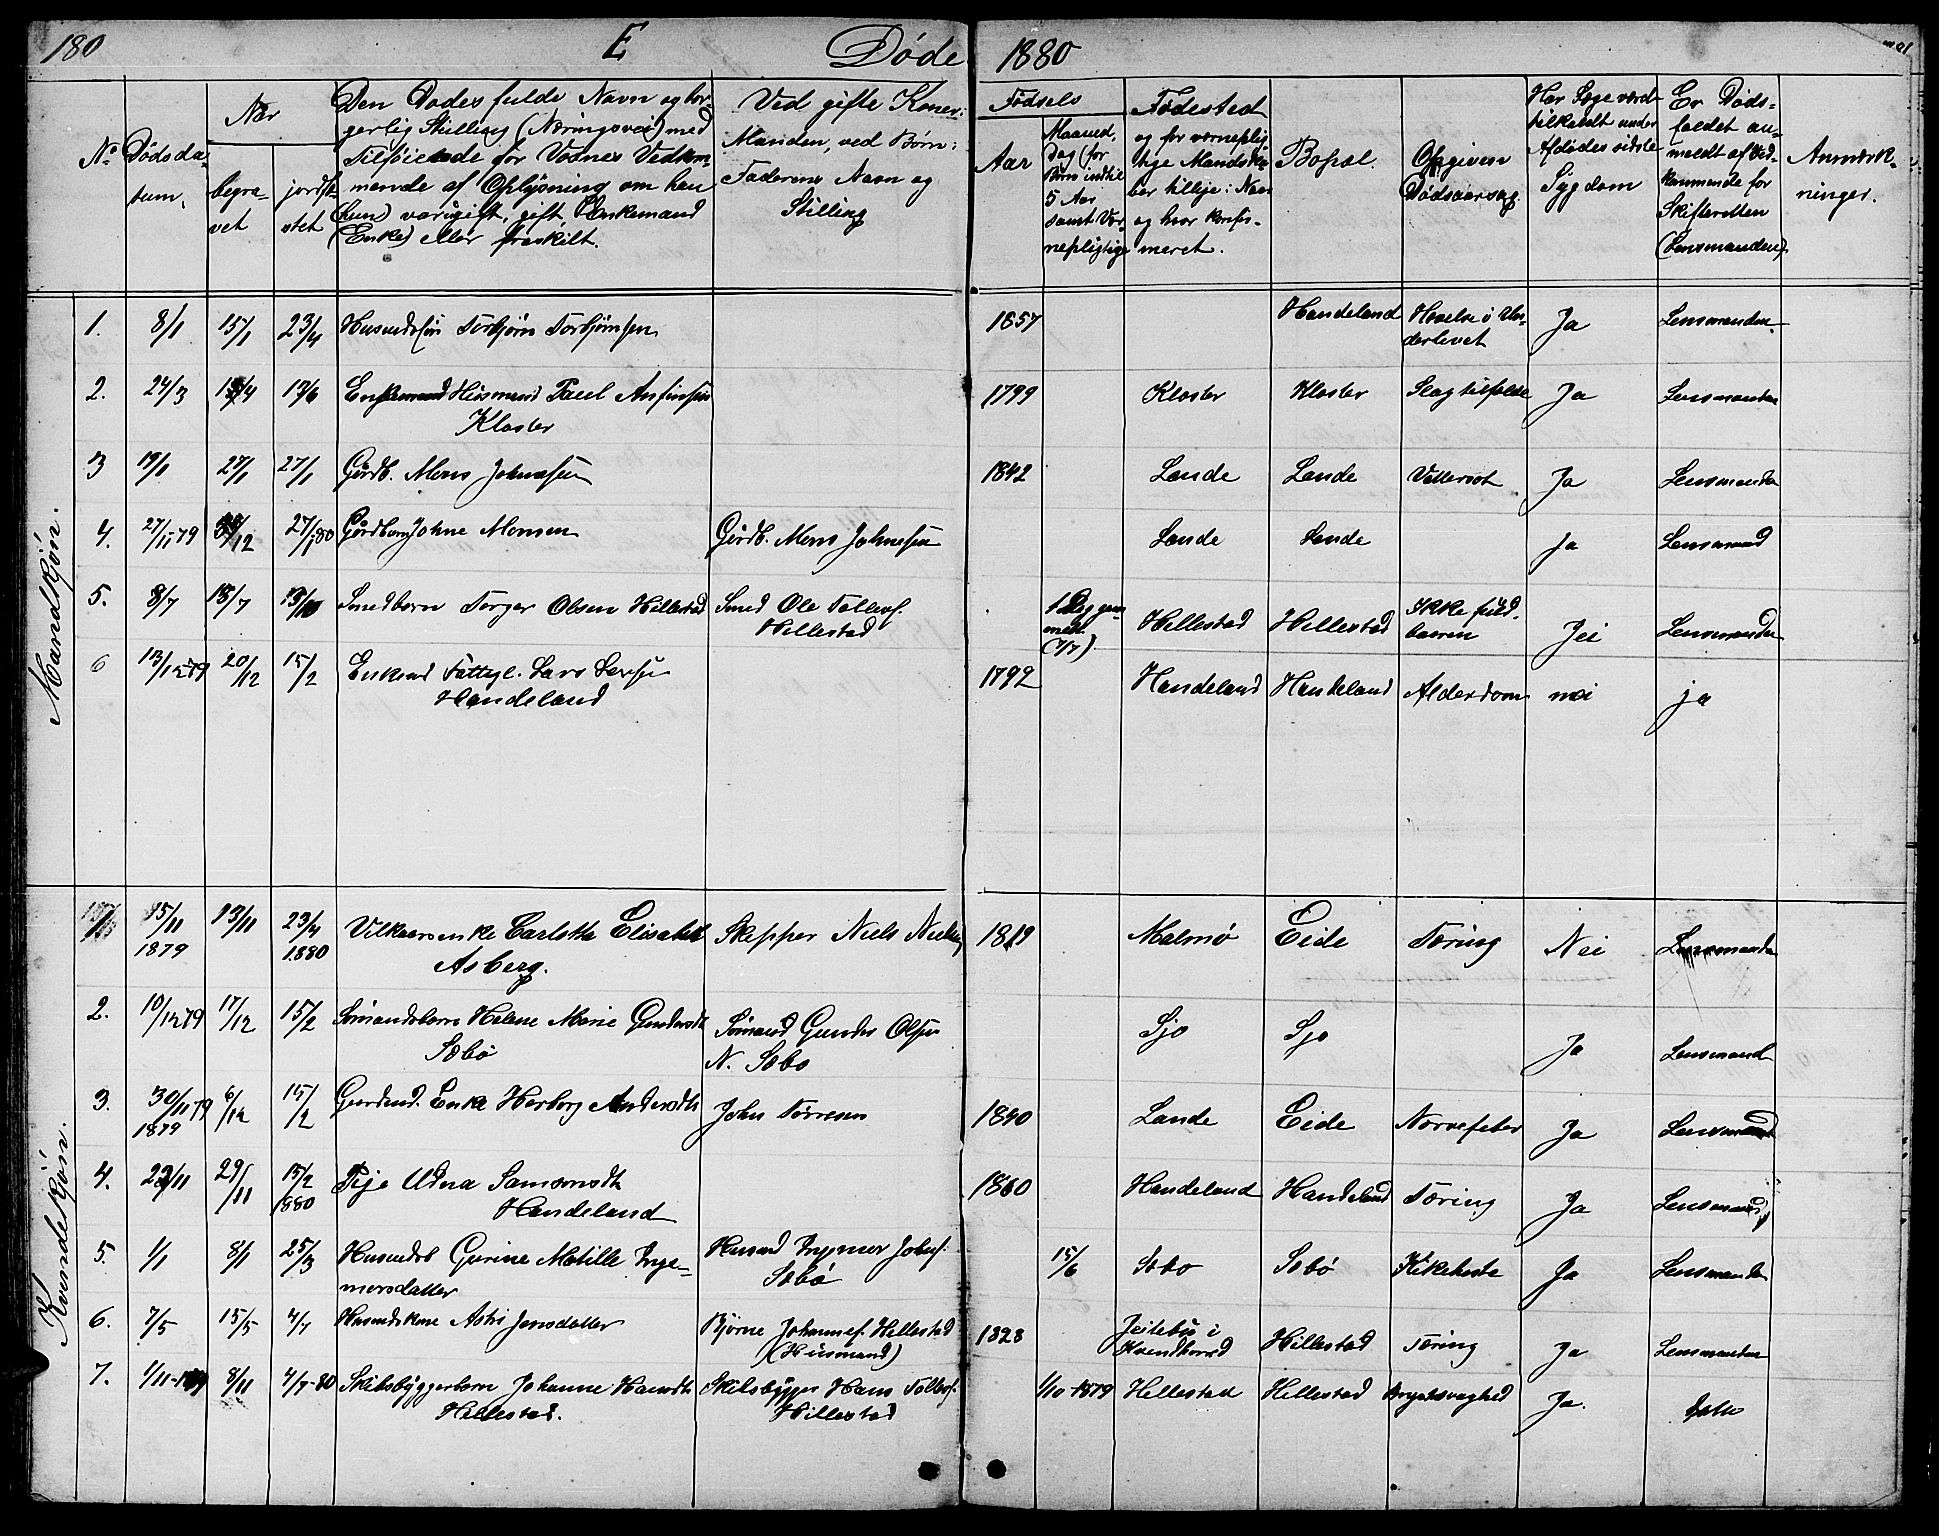 180 E Døde 1880
No
Dødsda-
tum.
Når
begra-
vet
jordfæ-
stet
Den Dødes fulde Navn og bor-
gerlig Stilling (Næringsvei) med
Tilføiende for Voxnes Vedkom-
mende af Oplysning om han
(hun) var ugift, gift, Enkemand
(Enke) eller fraskilt.
Ved gifte Koner:
Manden, ved Børn:
Faderens Navn og
Stilling
Fødsels
Aar
Maaned,
Dag (for
Børn indtil
5 Aar
samt Vær-
nepligtige
Fødested
og for værneplig-
tige Mandska-
ber tillige: Naar
og hvor konfir-
meret.
Bopæl
Opgiven
Dødsaarsag.
Har Læge været
tilkaldt under
Afdødes sidste
Sygdom
Er Døds-
faldet an-
meldt af Ved-
kommende for
Skifteretten
(Lensmanden).
Anmærk-
ninger.
Mandkjøn.
1. 8/1 15/1 23/4 Husmdssøn Torbjørn Torbjørnsen 1857 Handeland Hævelse i Un-
derlivet Ja Lensmanden.
2. 24/3 4 13/6 Enkemand Husmand Paul Anfinsen
Kloster 1799 Kloster Kloster Slagtilfælde Ja Lensmanden
3 19/1 27/1 27/1 Gårdb. Mons Johnsen 1842 Lande Lande Vattersot Ja Lensmanden
4. 27/11-79 /12 27/1 80 Gårdbarn Johne Monsen Gårdb. Mons Johnesen Lande Lande Ja Lensmand
5. 8/7 18/7 13/10 Smedbarn Torger Olsen Hillestad Smed Ole Tollevs.
Hillestad 1 Dag gam-
mel
(7/7). Hillestad Hillestad Ikke fuld-
baaren Jei Lensmanden
6 13/12-79 20/12 15/2 Enkemd Fattigl. Lars Larsen
Handeland 1792 Handeland Handeland Alderdom nei ja
Kvindekjøn.
15/11
1879 13/11 23/4
1880 Vilkaarsenke Carlotta Elisabet
Asberg. Skipper Niels Nielsen 1819 Malmø Eide Tæring Nei Lensmanden
2. 10/12 79 17/12 15/2 Sømandsbarn Helene Marie Gundersdt
Sæbø Sømand Gunder Olsen
N. Sæbø Sjo Sjo Ja Lensmand
3. 30/11 79
1879 6/12 15/2 Gårdmd. Enke Herborg Andersdt John Tørresen 1840 Lande Eide Nervefeber Ja Lensmand
4. 22/11 29/11 15/2
1880 Pige Udna Samsonsdt
Handeland 1860 Handeland Handeland Tæring Ja Lensmand
5. 1/1 8/1 25/3 Husmdsb Gurine Matille Inge-
morsdatter Husmd Ingemor Johns.
Sæbø 15/6 Sæbø Sæbø Kikhoste Ja Lensmanden
6. 7/5 15/5 4/7 Husmdskone Astri Jensdatter Bjørne Johannes. Hillestad
(Husmand) 1828 Jeilebu i
Kvindherred Hillestad Tæring Ja Lensmanden
7. 1/11-1879 8/11 4/7-80 Skibsbyggerbarn Johanne Hansdt
Hillestad. Skibsbygger Hans Tollevs.
Hillestad 1/10-1879 Hillestad Hillestad Brystsvaghed Ja. ditto